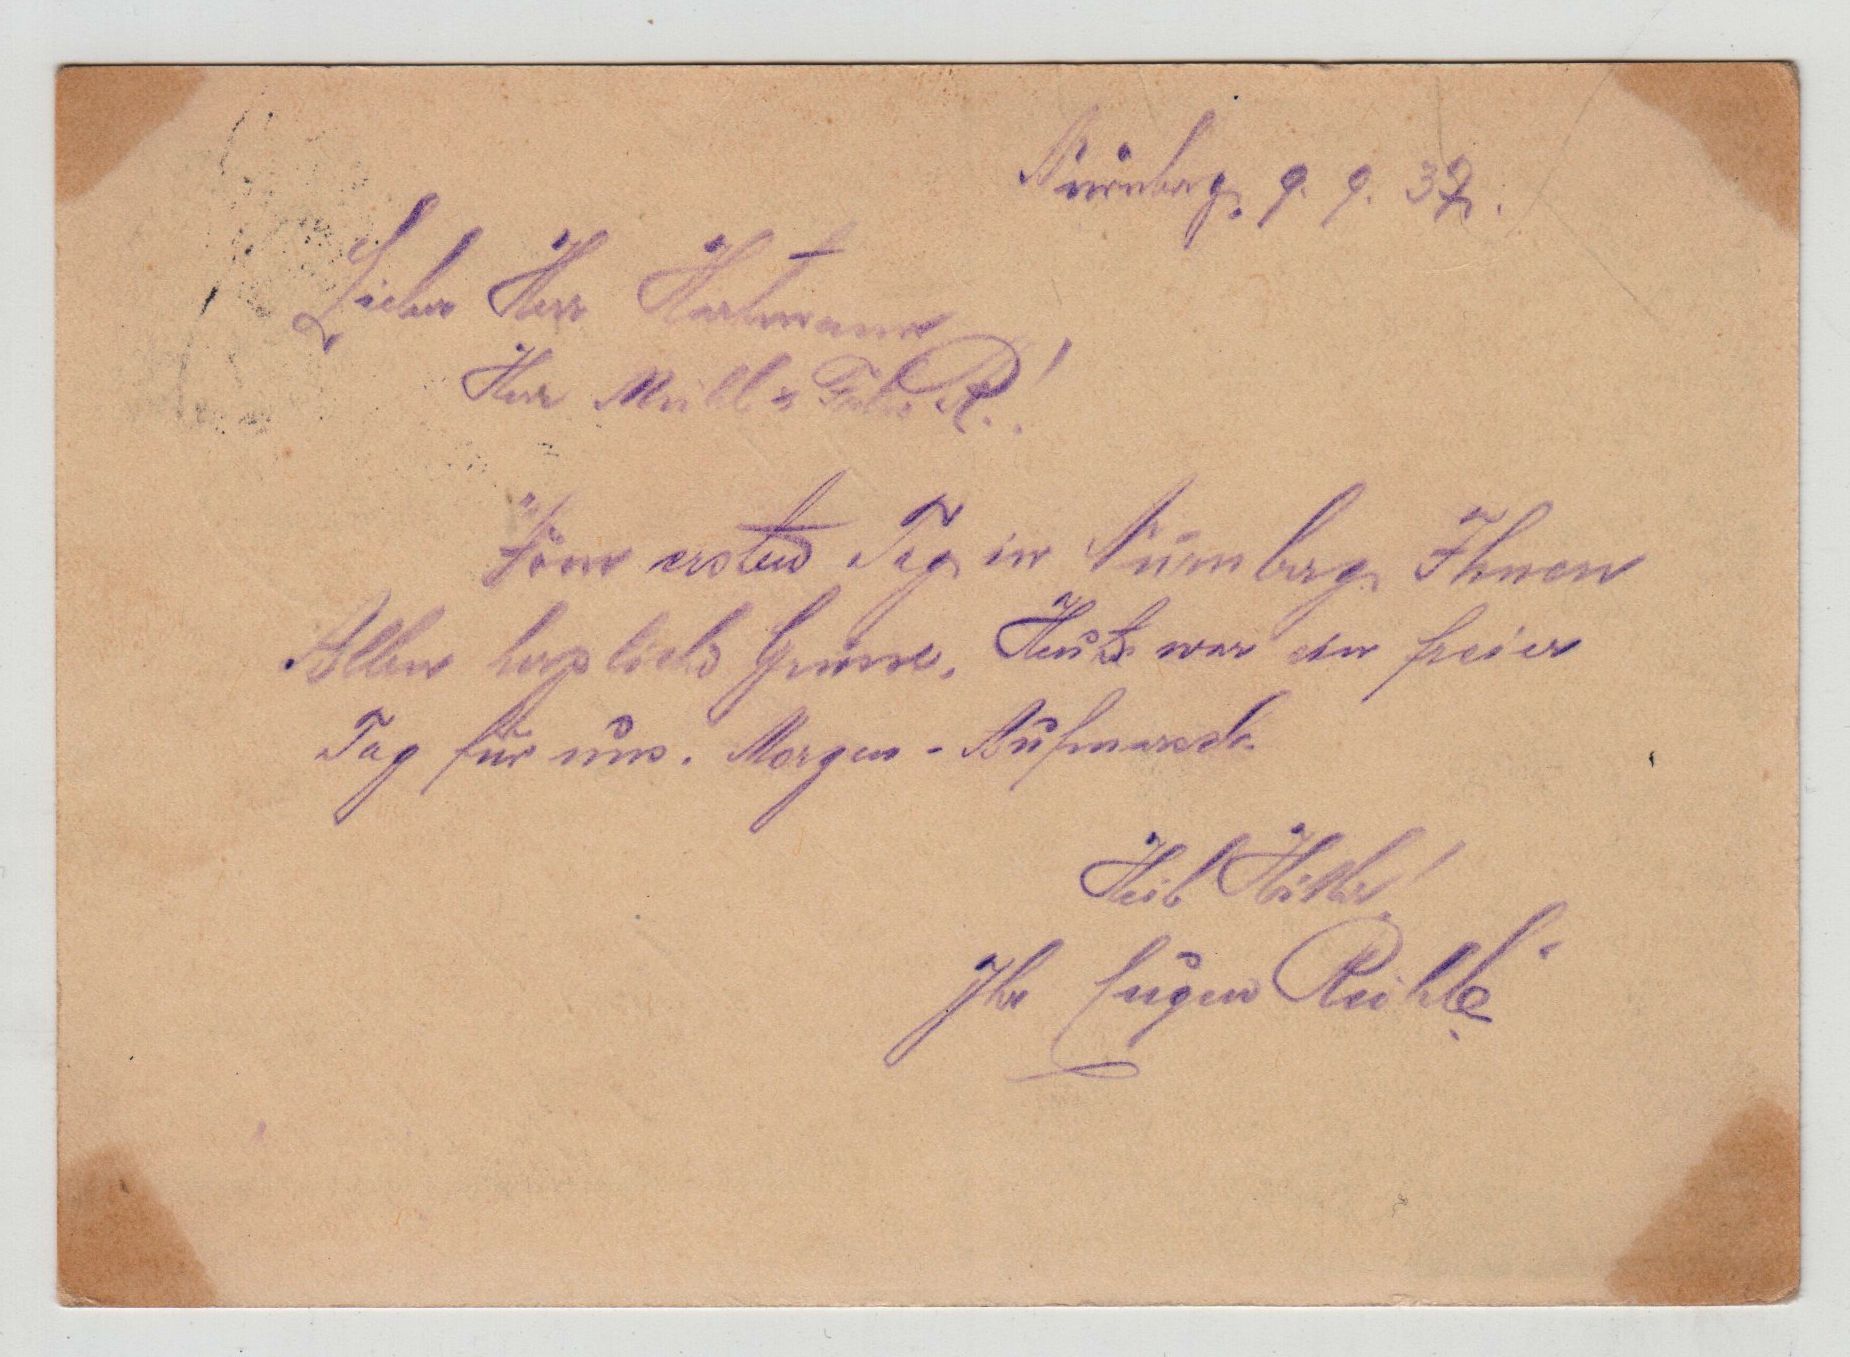 Nürnberg, 9. 9. 37.
Lieber Herr Hartmann
Herr
Vom ersten Tag in Nürnberg Ihnen
Allen herzliche Grüsse. Heute war ein freier
Tag für uns. Morgen - Aufmarsch.
Heil Hitler!
Ihr Eugen